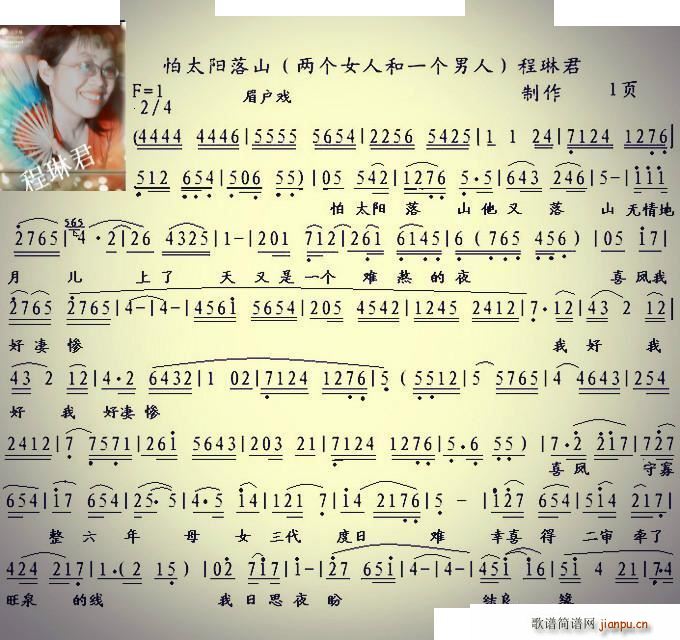 怕太阳落山（两个女人和一个男人）程琳君
F=1 眉户戏 制作 1页
2/4
程琳君
(4444 4446|5555 5654|2256 5425|1 1 24|7124 1276|
512 654|506 55)|05 542|1276 5·5|643 246|5-|111
怕太阳 落 山他又 落 山 无情地
2765|4·2|26 4325|1-|201 712|261 6145|6(765 456)|05 17|
月 儿 上了 天又是一个 难熬的夜 喜凤我
2765 2765|4-|4-|4561 5654|205 4542|1245 2412|7·12|43 2 12|
好凄惨 我好 我
43 2 12|4·2 6432|1 02|7124 1276|5(5512|5 5765|4 4643|254
好 我 好凄惨
2412|7 7571|261 5643|203 21|7124 1276|5·6 55)|7·2 217|727
喜凤 守寡
654|17 654|25·5|4·5 14|121 7|14 2176|5-|127 654|514 217|
整六年 母女三代 度日 难 幸喜得 二审牵了
424 217|1·(2 15)|02 717|1-|27 651|4-|4-|451 16|51 421|7·4
旺泉 的线 我日思夜盼 结良 缘
歌谱简谱网
jianpu.cn